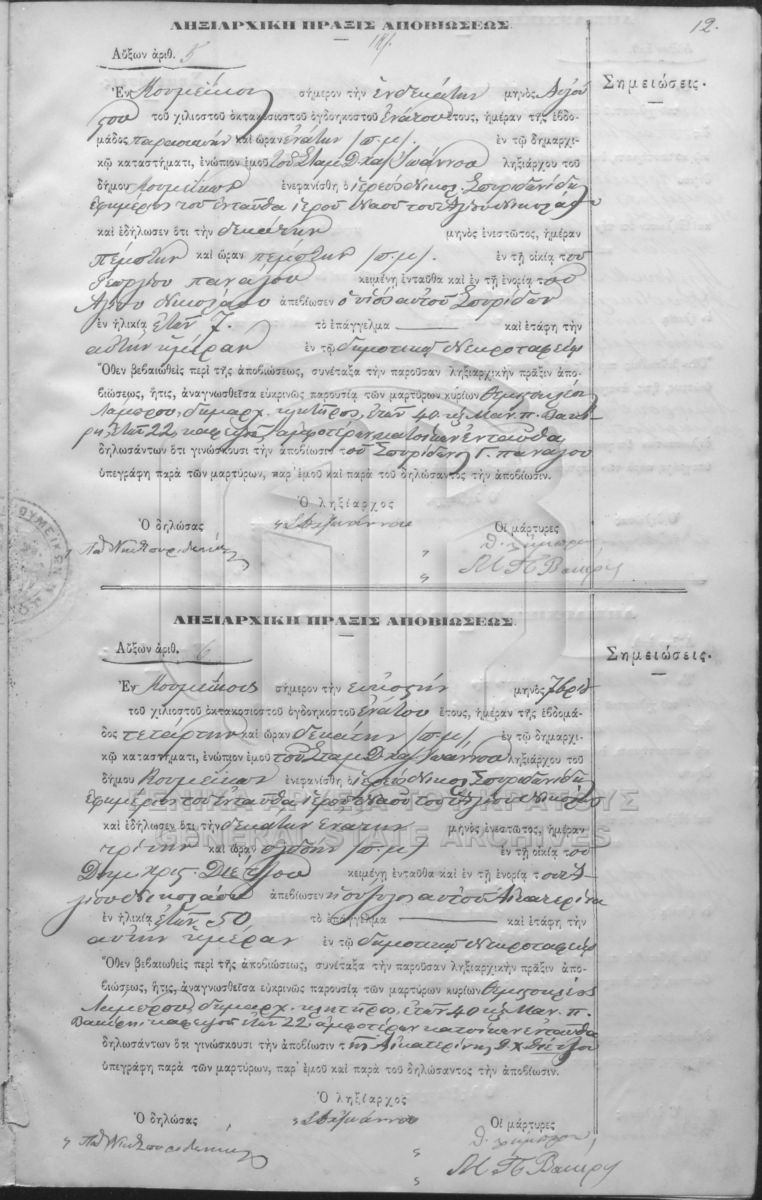 12.
ΛΗΞΙΑΡΧΙΚΗ ΠΡΑΞΙΣ ΑΠΟΒΙΩΣΕΩΣ.
Αὔξων ἀριθ. 5
Σημειώσεις.
Ἐν Κουμεΐκοις σήμερον τὴν ἑνδεκάτην μηνὸς Αὐγού
στου τοῦ χιλιοστοῦ ὀκτακοσιοστοῦ ὀγδοηκοστοῦ ἐνάτου ἔτους, ἡμέραν τῆς ἑβδο-
μάδος παρασκευὴν καὶ ὥραν ἐνάτην (π.μ.) ἐν τῷ δημαρχι-
κῷ καταστήματι, ἐνώπιον ἐμοῦ τοῦ Σταμ. Δ. χαζΙωάννου ληξιάρχου τοῦ
δήμου Κουμεΐκων ἐνεφανίσθη ὁ ἱερεὺς Νικολ. Σπυριδωνίδης
ἐφημέριος τοῦ ἐνταῦθα ἱεροῦ Ναοῦ τοῦ Ἁγίου Νικολάου
καὶ ἐδήλωσεν ὅτι τὴν δεκάτην μηνὸς ἐνεστῶτος, ἡμέραν
πέμπτην καὶ ὥραν πέμπτην (π.μ.) ἐν τῇ οἰκίᾳ τοῦ
Γεωργίου παναγου κειμένῃ ἐνταῦθα καὶ ἐν τῇ ἐνορίᾳ τοῦ
Ἁγίου Νικολάου ἀπεβίωσεν ὁ υἱὸς αὐτοῦ Σπυρίδων
ἐν ἡλικίᾳ ἐτῶν 7. τὸ ἐπάγγελμα — καὶ ἐτάφη τὴν
αὐτὴν ἡμέραν ἐν τῷ δημοτικῷ Νεκροταφείῳ
Ὅθεν βεβαιωθεὶς περὶ τῆς ἀποβιώσεως, συνέταξα τὴν παροῦσαν ληξιαρχικὴν πρᾶξιν ἀπο-
βιώσεως, ἥτις, ἀναγνωσθεῖσα εὐκρινῶς παρουσίᾳ τῶν μαρτύρων κυρίων Θεμιστοκλέους
Λάμπρου, δημαρχ. κλητῆρος, ἐτῶν 40 κ Μαν. π. Βακι-
ρη, ἐτῶν 22, ἀμφοτέρων κατοίκων ἐνταῦθα
δηλωσάντων ὅτι γινώσκουσι τὴν ἀποβίωσιν τοῦ Σπυρίδωνος Γ. παναγου
ὑπεγράφη παρὰ τῶν μαρτύρων, παρ᾽ ἐμοῦ καὶ παρὰ τοῦ δηλώσαντος τὴν ἀποβίωσιν.
Ὁ ληξίαρχος
Ὁ δηλώσας
Οἱ μάρτυρες
Μ Π Βακιρης
ΛΗΞΙΑΡΧΙΚΗ ΠΡΑΞΙΣ ΑΠΟΒΙΩΣΕΩΣ.
Αὔξων ἀριθ. 6
Σημειώσεις.
Ἐν Κουμεΐκοις σήμερον τὴν εἰκοστὴν μηνὸς 7βρίου
τοῦ χιλιοστοῦ ὀκτακοσιοστοῦ ὀγδοηκοστοῦ ἐνάτου ἔτους, ἡμέραν τῆς ἑβδομά-
δος τετάρτην καὶ ὥραν δεκάτην (π.μ.) ἐν τῷ δημαρχι-
κῷ καταστήματι, ἐνώπιον ἐμοῦ τοῦ Σταμ. Δ. χαζΙωάννου ληξιάρχου τοῦ
δήμου Κουμεΐκων ἐνεφανίσθη ὁ ἱερεὺς Νικολ. Σπυριδωνίδης
ἐφημέριος τοῦ ἐνταῦθα ἱεροῦ Ναοῦ τοῦ Ἁγίου Νικολάου
ΓΕΝΙΚΑ ΑΡΧΕΙΑ ΤΟΥ ΚΡΑΤΟΥΣ
καὶ ἐδήλωσεν ὅτι τὴν δεκάτην ἐνάτην μηνὸς ἐνεστῶτος, ἡμέραν
GENERAL STATE ARCHIVES
τρίτην καὶ ὥραν ὀγδόην (π.μ.) ἐν τῇ οἰκίᾳ τοῦ
κειμένῃ ἐνταῦθα καὶ ἐν τῇ ἐνορίᾳ τοῦ Ἁ-
γίου Νικολάου ἀπεβίωσεν ἡ σύζυγος αὐτοῦ Αἰκατερίνα
ἐν ἡλικίᾳ ἐτῶν 50 τὸ ἐπάγγελμα — καὶ ἐτάφη τὴν
αὐτὴν ἡμέραν ἐν τῷ δημοτικῷ Νεκροταφείῳ
Ὅθεν βεβαιωθεὶς περὶ τῆς ἀποβιώσεως, συνέταξα τὴν παροῦσαν ληξιαρχικὴν πρᾶξιν ἀπο-
βιώσεως, ἥτις, ἀναγνωσθεῖσα εὐκρινῶς παρουσίᾳ τῶν μαρτύρων κυρίων Θεμιστοκλέους
Λάμπρου, δημαρχ. κλητῆρος, ἐτῶν 40 κ Μαν. π.
Βακιρη ἐτῶν 22, ἀμφοτέρων κατοίκων ἐνταῦθα
δηλωσάντων ὅτι γινώσκουσι τὴν ἀποβίωσιν τῆς Αἰκατερίνης
ὑπεγράφη παρὰ τῶν μαρτύρων, παρ᾽ ἐμοῦ καὶ παρὰ τοῦ δηλώσαντος τὴν ἀποβίωσιν.
Ὁ ληξίαρχος
Ὁ δηλώσας
Οἱ μάρτυρες
Μ Π Βακιρης